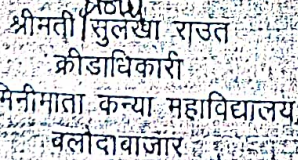 श्रीमती सुलेखा राउत
क्रीडाधिकारी
मिनीमाता कन्या महाविद्यालय
बलोदाबाजार